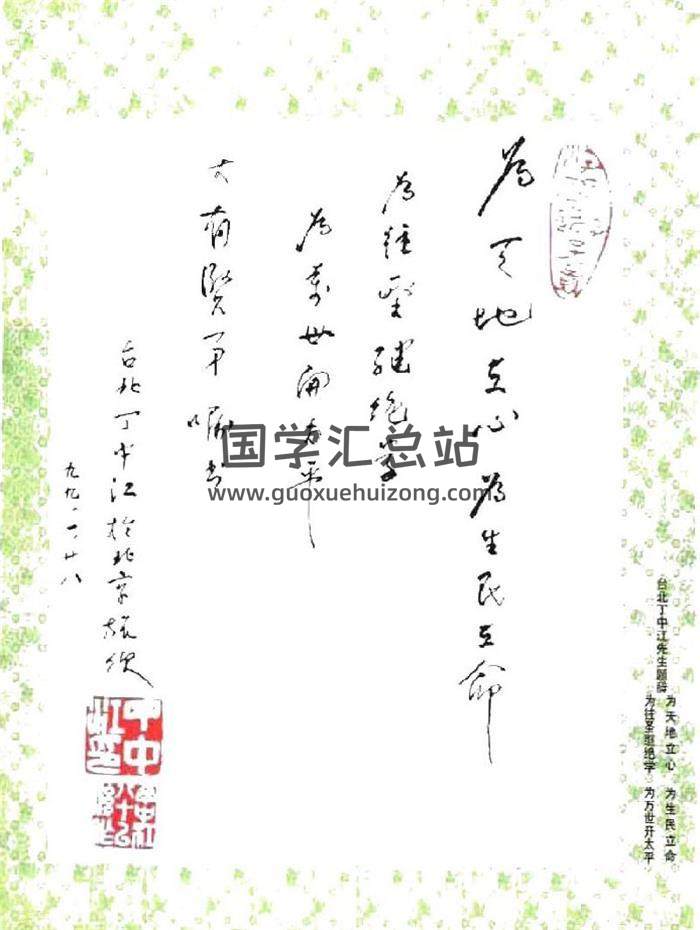 為天地立心 為生民立命
為往聖繼絕學
為萬世開太平
賢弟囑書
台北丁中江於北京旅次
九九、一、廿八
丁中江印
台北丁中江先生题辞
为天地立心 为生民立命
为往圣继绝学 为万世开太平
国学汇总站
www.guoxuehuizong.com